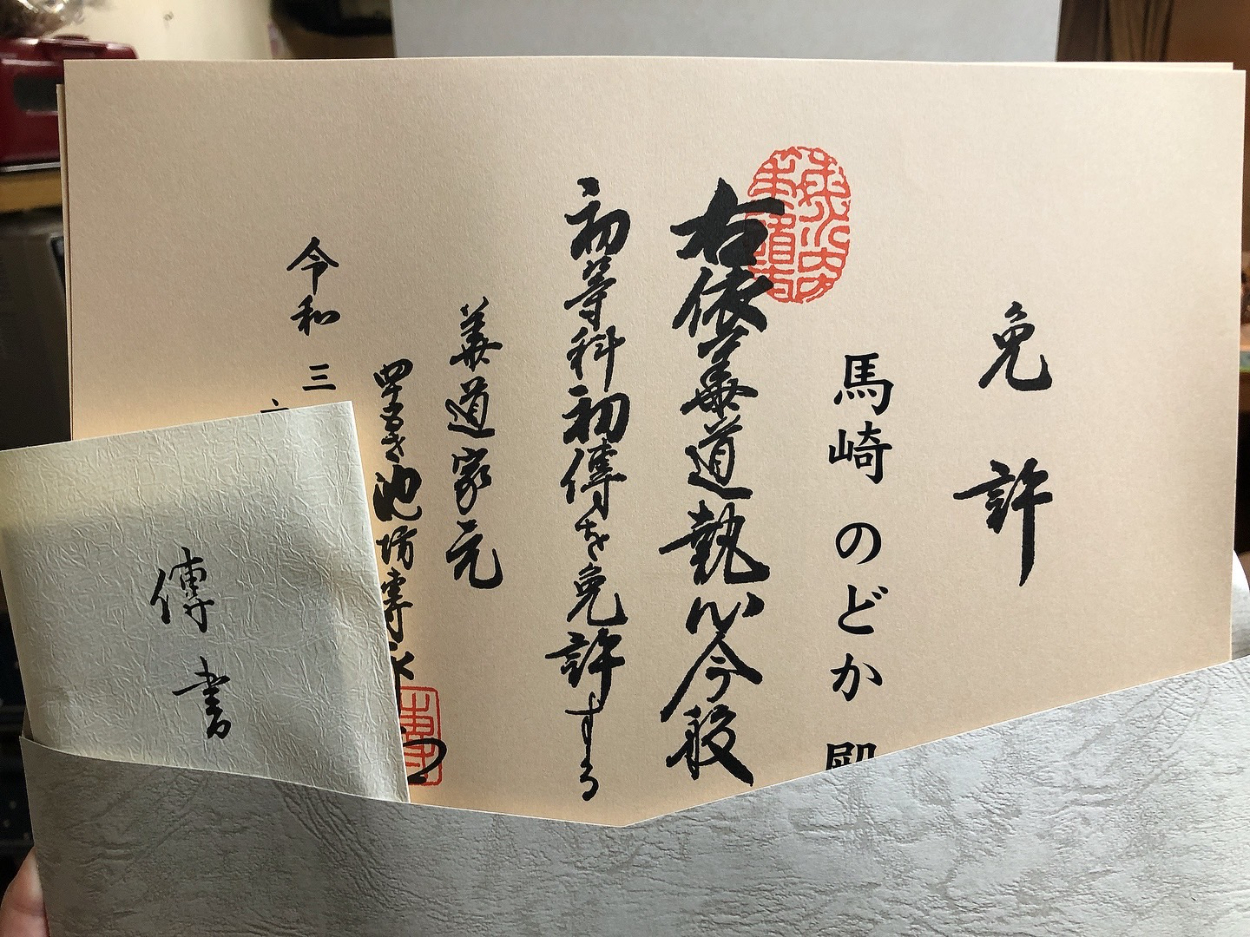 免許
馬崎 のどか 殿
右依華道執心今般
初等科初傳を免許する
華道家元
四十五世池坊專永
令和三
傳書